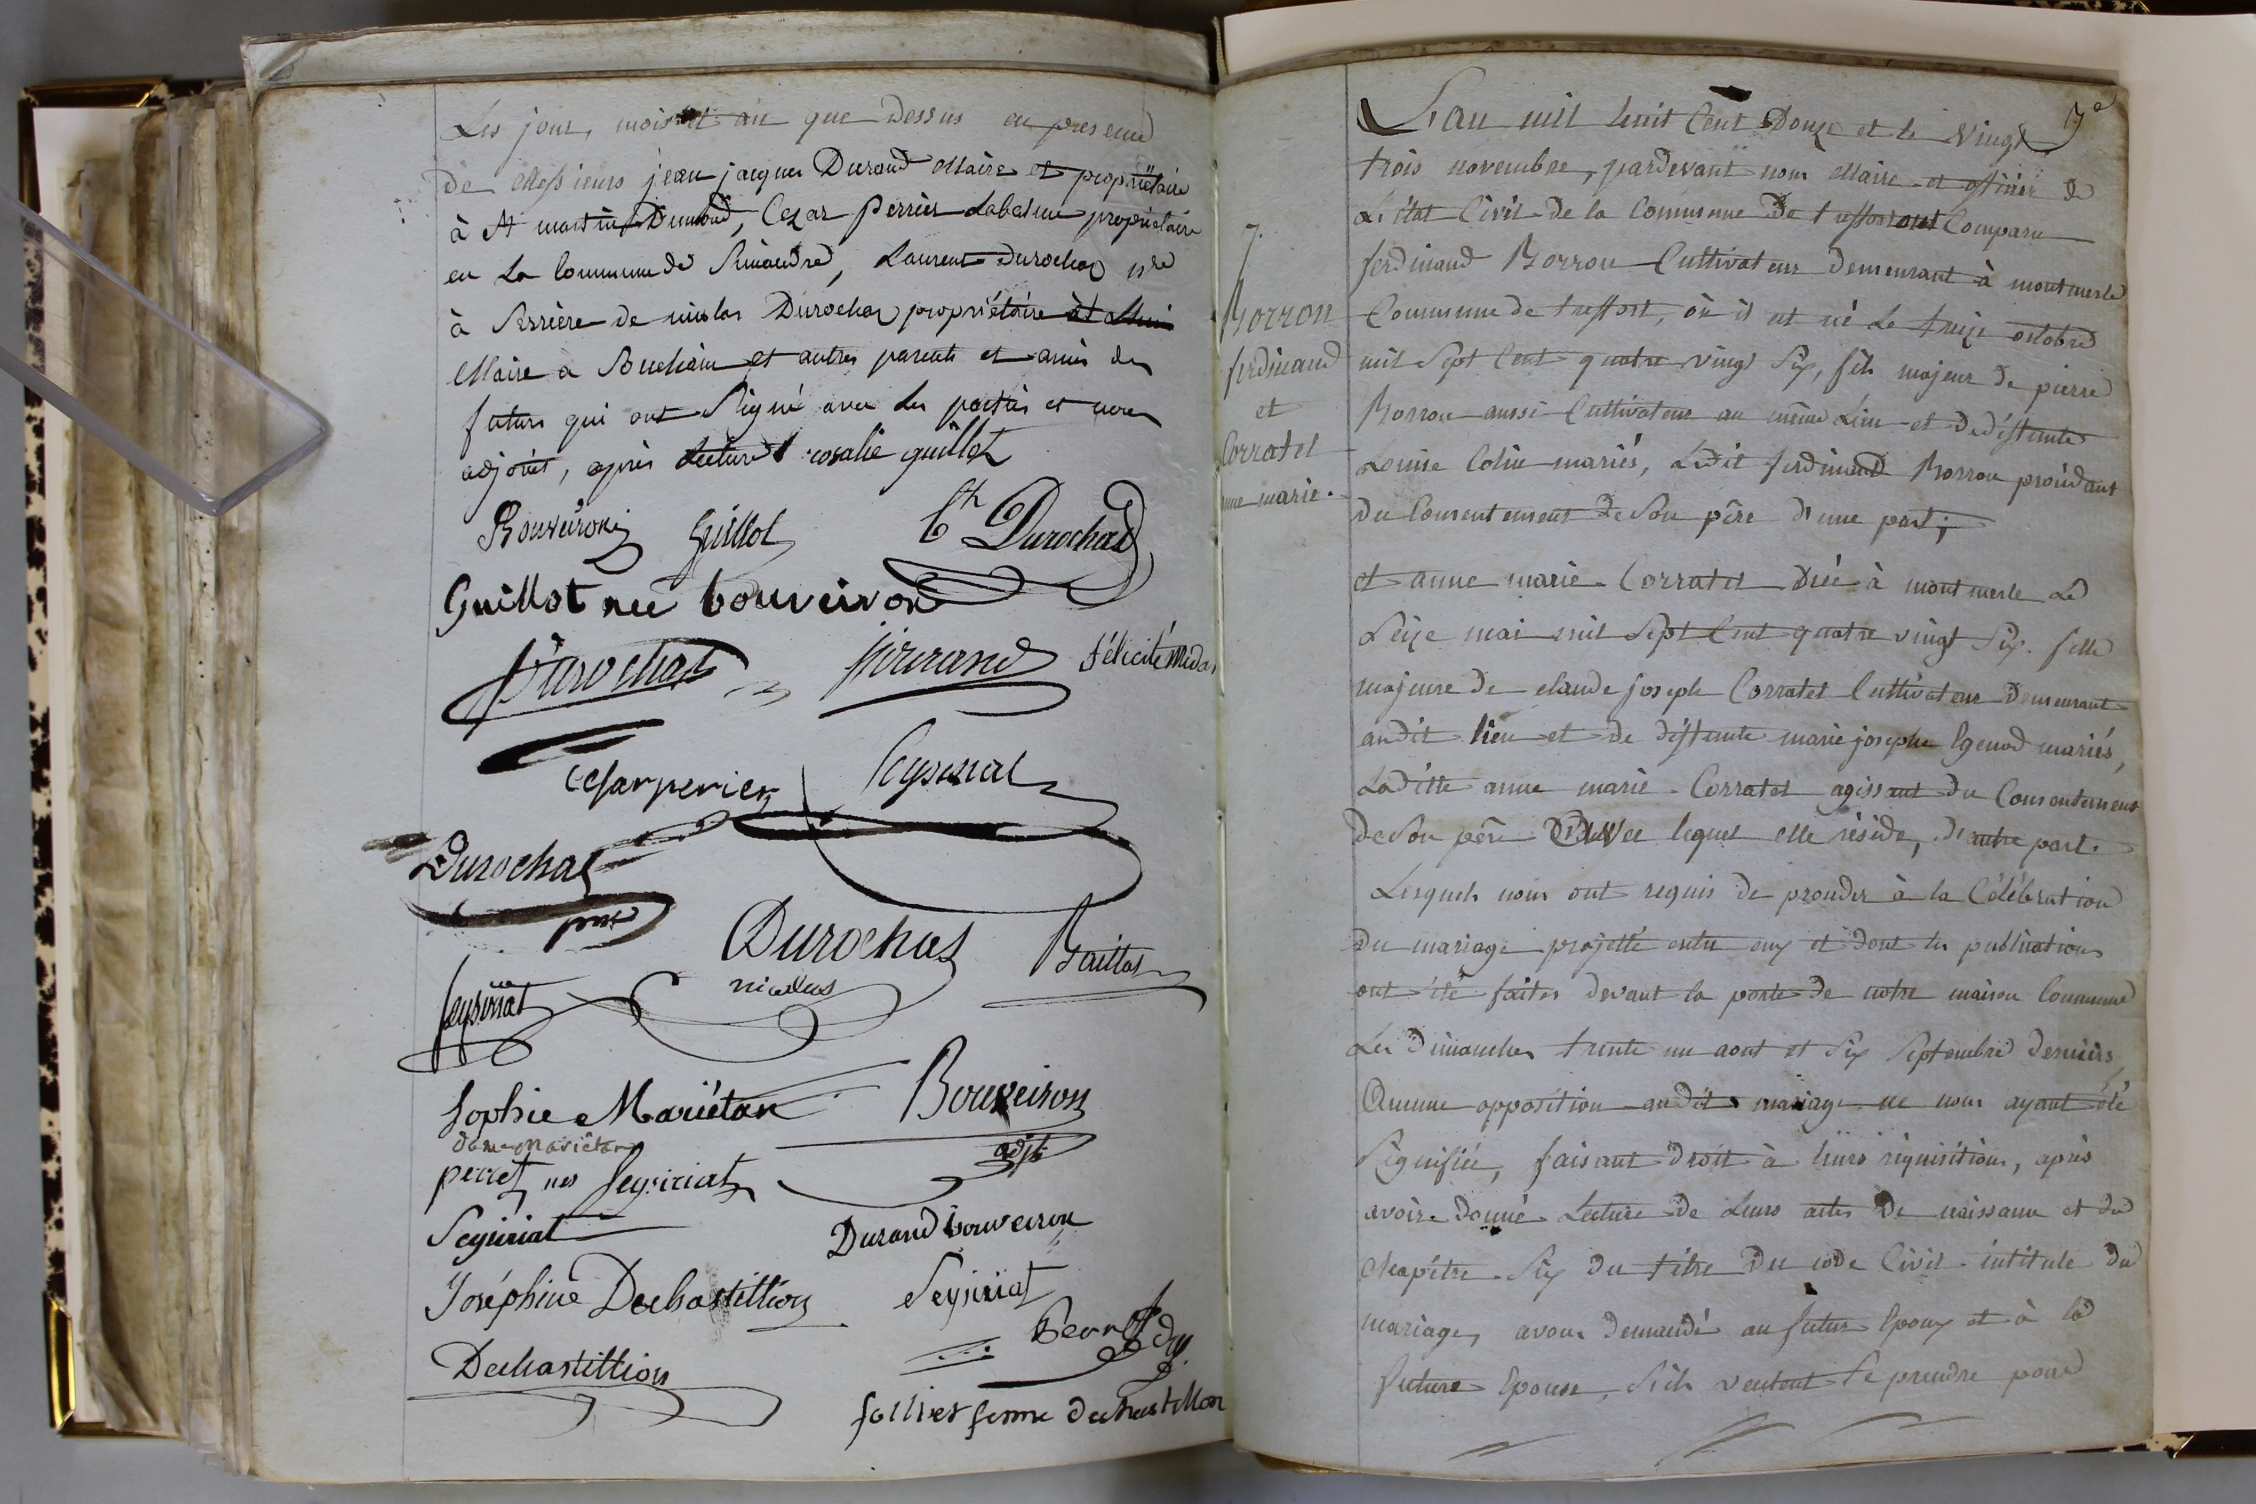 Les jour, mois et an que Dessus en presence
de Messieurs jean jacques Durand Maire et propriétaire
à St martin Dumond, Cezar Perrier Labalme propriétaire
en La Commune de Simandre, Laurent Durochat
à Serrière de nicolas Durochat propriétaire
Maire a Bucham et autres parents et amis des
futurs qui ont Signé avec les parties et nous
adjoint, après Lecture rosalie guillot
Bouveiron Guillot Ch Durochat
Guillot née bouveiron
Durochat Durand félicité Midas
Charperier Seysiriat
Durochat
pere
Durochat Baillat
nicolas
Seysiriat
Sophie Mariétan Bouveiron
Dame Mariétan adjt
perret née Seysiriat
Seysiriat Durand bouveiron
Joséphine Dechastillion Seysiriat
Dechastillion
follivet femme dechastillon
7e
L'an mil huit Cent Douze et le Vingt
trois novembre, pardevant nous Maire et officier de
L'état Civil de la Commune De treffort ont Comparu
7.
Borron
ferdinand
et
Corratel
anne marie.
ferdinand Borron Cultivateur demeurant à montmerle
Commune de treffort, où il est né Le treize octobre
mil Sept Cent quatre vingt Six, fils majeur de pierre
Borron aussi Cultivateur au même Lieu et de déffunte
Louise Colin mariés, Ledit ferdinand Borron procédant
du Consentement de Son père d'une part;
et anne marie Corratel Née à montmerle Le
Seize mai mil Sept Cent quatre vingt Six. fille
majeure de claude joseph Corratel Cultivateur Demeurant
audit lieu et de deffunte marie josephe Egenod mariés,
Laditte anne marie Corratel agissant du Consentement
de Son père avec lequel elle réside, d'autre part.
Lesquels nous ont requis de proceder à la Célébration
Du mariage projetté entre eux et dont les publications
ont été faites devant la porte de notre maison Commune
Les Dimanches trente un aout et Six Septembre derniers,
Aucune opposition audit mariage ne nous ayant été
Signifiée, faisant droit à leurs réquisitions, après
avoire donné Lecture de Leurs actes De naissance et du
chapitre Six du titre Du code Civil intitulé du
mariage, avons demandé au futur Epoux et à la
future Epouse, S'ils veulent Se prendre pour